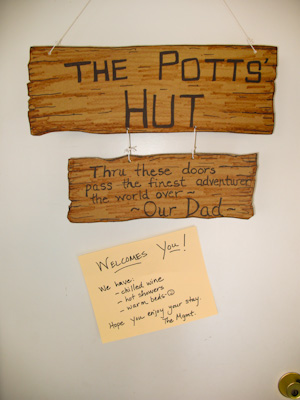 THE POTTS'
HUT
Thru these doors
pass the finest adventurer
the world over ~
~ Our Dad ~
WELCOMES YOU!
We have:
- chilled wine
- hot showers
- warm beds ☺
Hope you enjoy your stay.
The Mgmt.